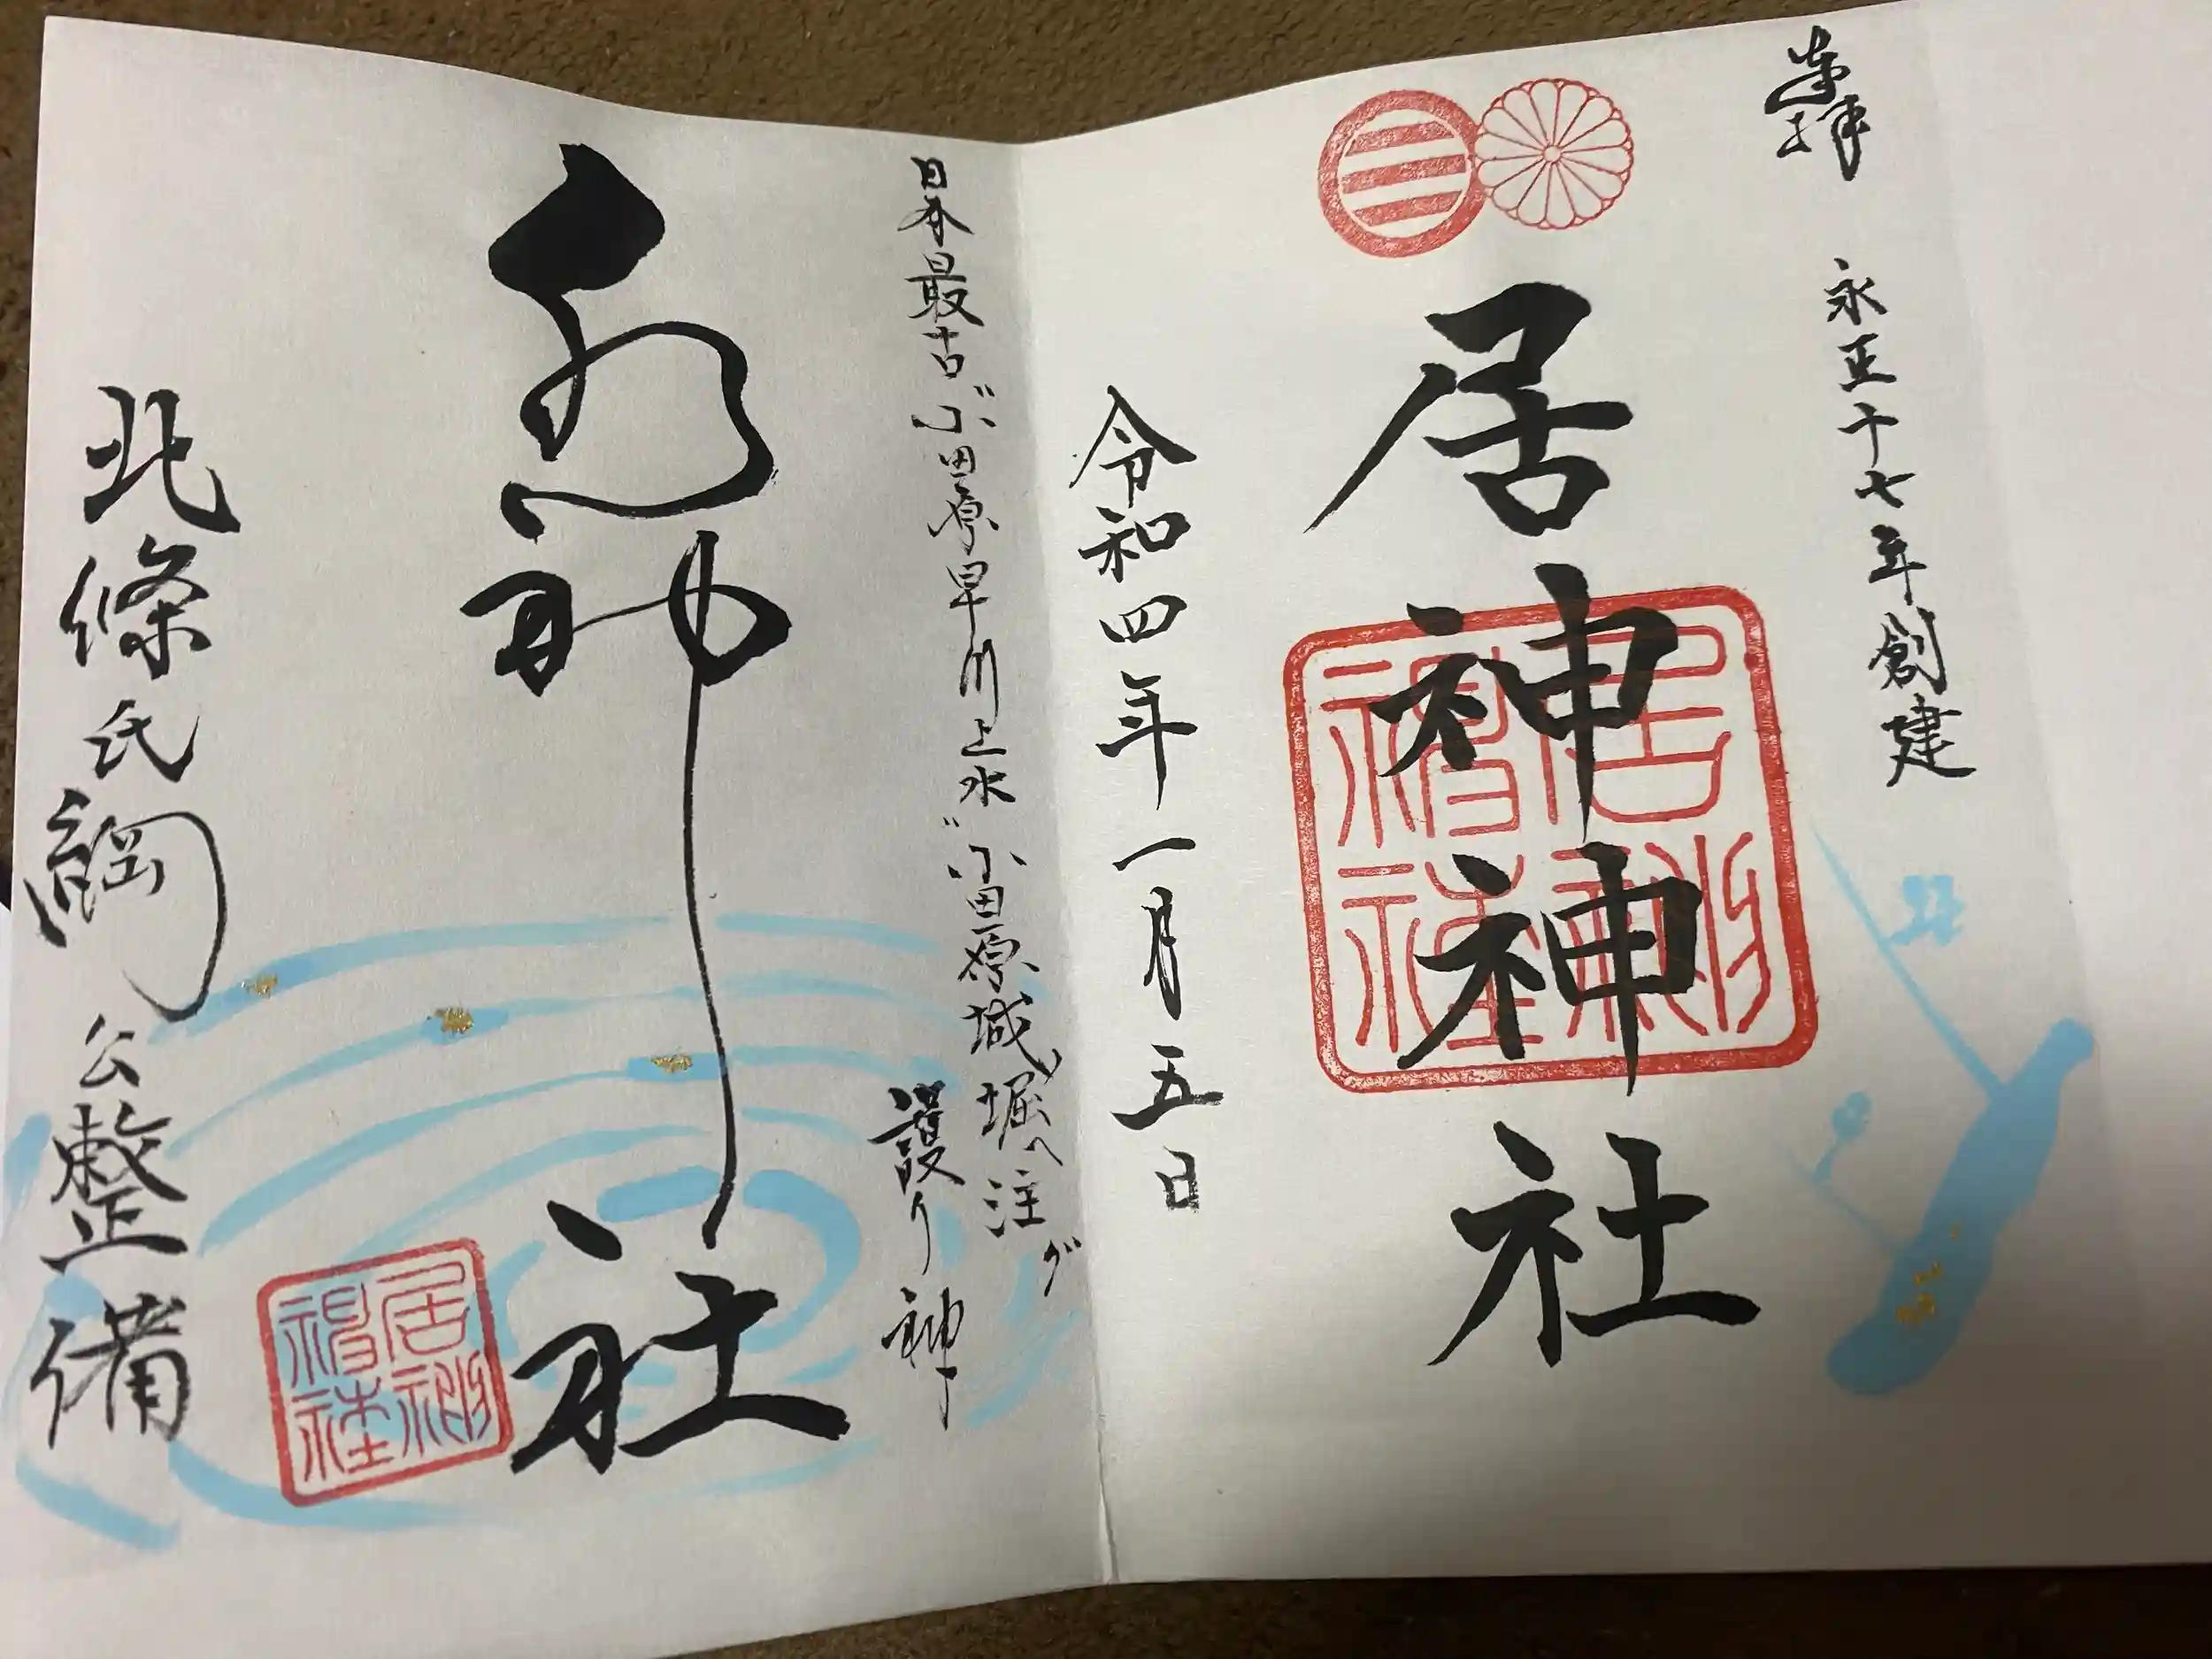 奉拝
永正十七年創建
居神神社
居神神社
令和四年一月五日
日本最古〝小田原早川上水〟小田原城ノ堀へ注グ
護り神
水神社
居神神社
北條氏綱公整備